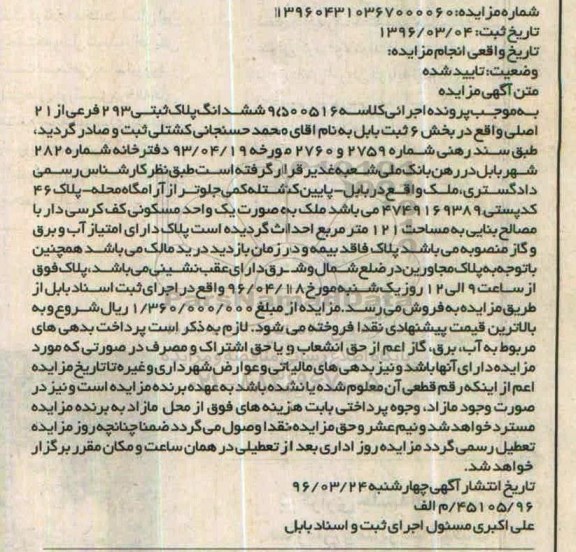 شماره مزایده: ۱۳۹۶۰۴۳۱۰۳۶۷۰۰۰۰۶۰
تاریخ ثبت: ۱۳۹۶/۰۳/۰۴
تاریخ واقعی انجام مزایده:
وضعیت: تایید شده
متن آگهی مزایده
به موجب پرونده اجرائی کلاسه ۹۵۰۰۵۱۶ ششدانگ پلاک ثبتی ۲۹۳ فرعی از ۲۱
اصلی واقع در بخش ۶ ثبت بابل به نام اقای محمد حسنجانی کشتلی ثبت و صادر گردید،
طبق سند رهنی شماره ۲۷۵۹ و ۲۷۶۰ مورخه ۹۳/۰۴/۱۹ دفترخانه شماره ۲۸۲
شهر بابل در رهن بانک ملی شعبه غدیر قرار گرفته است طبق نظر کارشناس رسمی
دادگستری، ملک واقع در بابل - پایین کشتله کمی جلوتر از آرامگاه محله - پلاک ۴۶
کدپستی ۴۷۴۹۱۶۹۳۸۹ می باشد ملک به صورت یک واحد مسکونی کف کرسی دار با
مصالح بنایی به مساحت ۱۲۱ متر مربع احداث گردیده است پلاک دارای امتیاز آب و برق
و گاز منصوبه می باشد پلاک فاقد بیمه و در زمان بازدید در ید مالک می باشد همچنین
با توجه به پلاک مجاورین در ضلع شمال و شرق دارای عقب نشینی می باشد، پلاک فوق
از ساعت ۹ الی ۱۲ روز یک شنبه مورخ ۹۶/۰۴/۱۸ واقع در اجرای ثبت اسناد بابل از
طریق مزایده به فروش می رسد. مزایده از مبلغ ۱/۳۶۰/۰۰۰/۰۰۰ ریال شروع و به
بالاترین قیمت پیشنهادی نقدا فروخته می شود. لازم به ذکر است پرداخت بدهی های
مربوط به آب، برق، گاز اعم از حق انشعاب و یا حق اشتراک و مصرف در صورتی که مورد
مزایده دارای آنها باشد و نیز بدهی های مالیاتی و عوارض شهرداری و غیره تا تاریخ مزایده
اعم از اینکه رقم قطعی آن معلوم شده یا نشده باشد به عهده برنده مزایده است و نیز در
صورت وجود مازاد، وجوه پرداختی بابت هزینه های فوق از محل مازاد به برنده مزایده
مسترد خواهد شد و نیم عشر و حق مزایده نقدا وصول می گردد ضمنا چنانچه روز مزایده
تعطیل رسمی گردد مزایده روز اداری بعد از تعطیلی در همان ساعت و مکان مقرر برگزار
خواهد شد.
تاریخ انتشار آگهی چهارشنبه ۹۶/۰۳/۲۴
۴۵۱۰۵/۹۶/م الف
علی اکبری مسئول اجرای ثبت و اسناد بابل